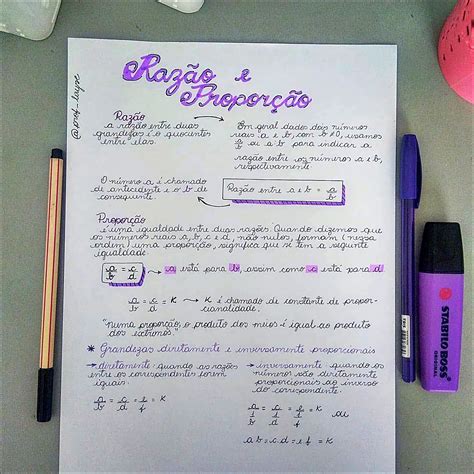 @prof_layse
Razão e
Proporção
Razão
a razão entre duas
grandezas é o quociente
entre elas.
Em geral dados dois números
reais a e b, com b ≠ 0, usamos
a/b ou a : b para indicar a
razão entre os números a e b,
respectivamente
O número a é chamado
de antecedente e o b de
consequente.
Razão entre a e b = a/b
Proporção
é uma igualdade entre duas razões. Quando dizemos que
os números reais a, b, c e d, não nulos, formam (nessa
ordem) uma proporção, significa que se tem a seguinte
igualdade
a/b = c/d → a está para b, assim como c está para d
a/b = c/d = K → K é chamado de constante de propor-
cionalidade.
"Numa proporção, o produto dos meios é igual ao produto
dos extremos"
* Grandezas diretamente e inversamente proporcionais
→ diretamente quando as razões
entre os correspondentes forem
iguais.
a/b = c/d = e/f = K
→ inversamente quando os
números são diretamente
proporcionais ao inverso
do correspondente.
a/(1/b) = c/(1/d) = e/(1/f) = K ou
a b = c.d = e f = K
STABILO BOSS
ORIGINAL